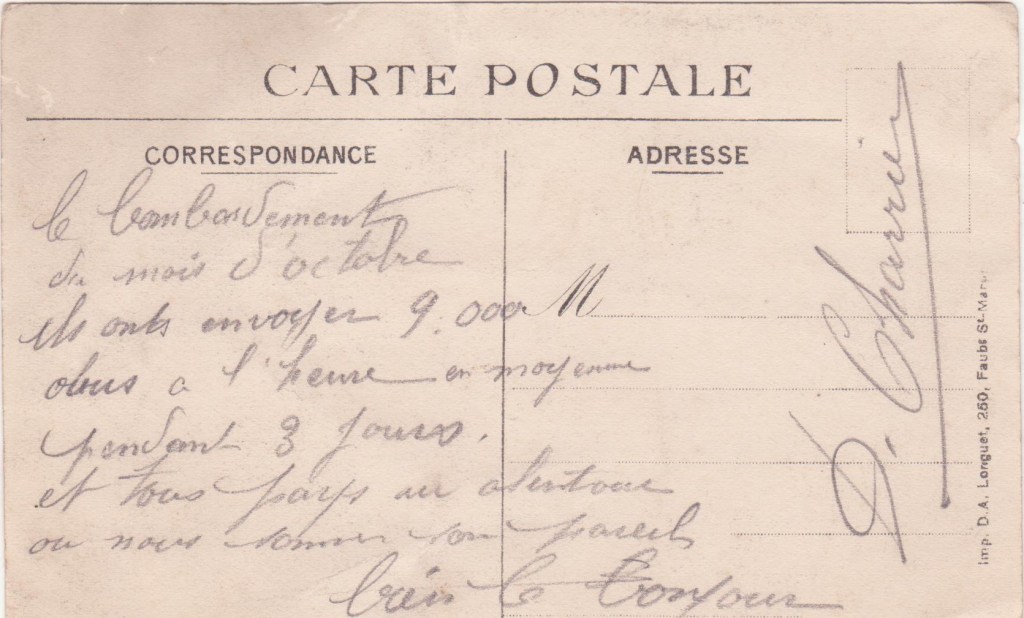 CARTE POSTALE
CORRESPONDANCE
ADRESSE
le bombardement
du mois d'octobre
ils onts envoyer 9.000
obus a l'heure en moyenne
pendant 3 jours.
et tous pays au alentour
ou nous sommes son pareils
bien le bonjour
M
D. Charrier
Imp. D.A. Longuet, 250, Faubg St-Martin